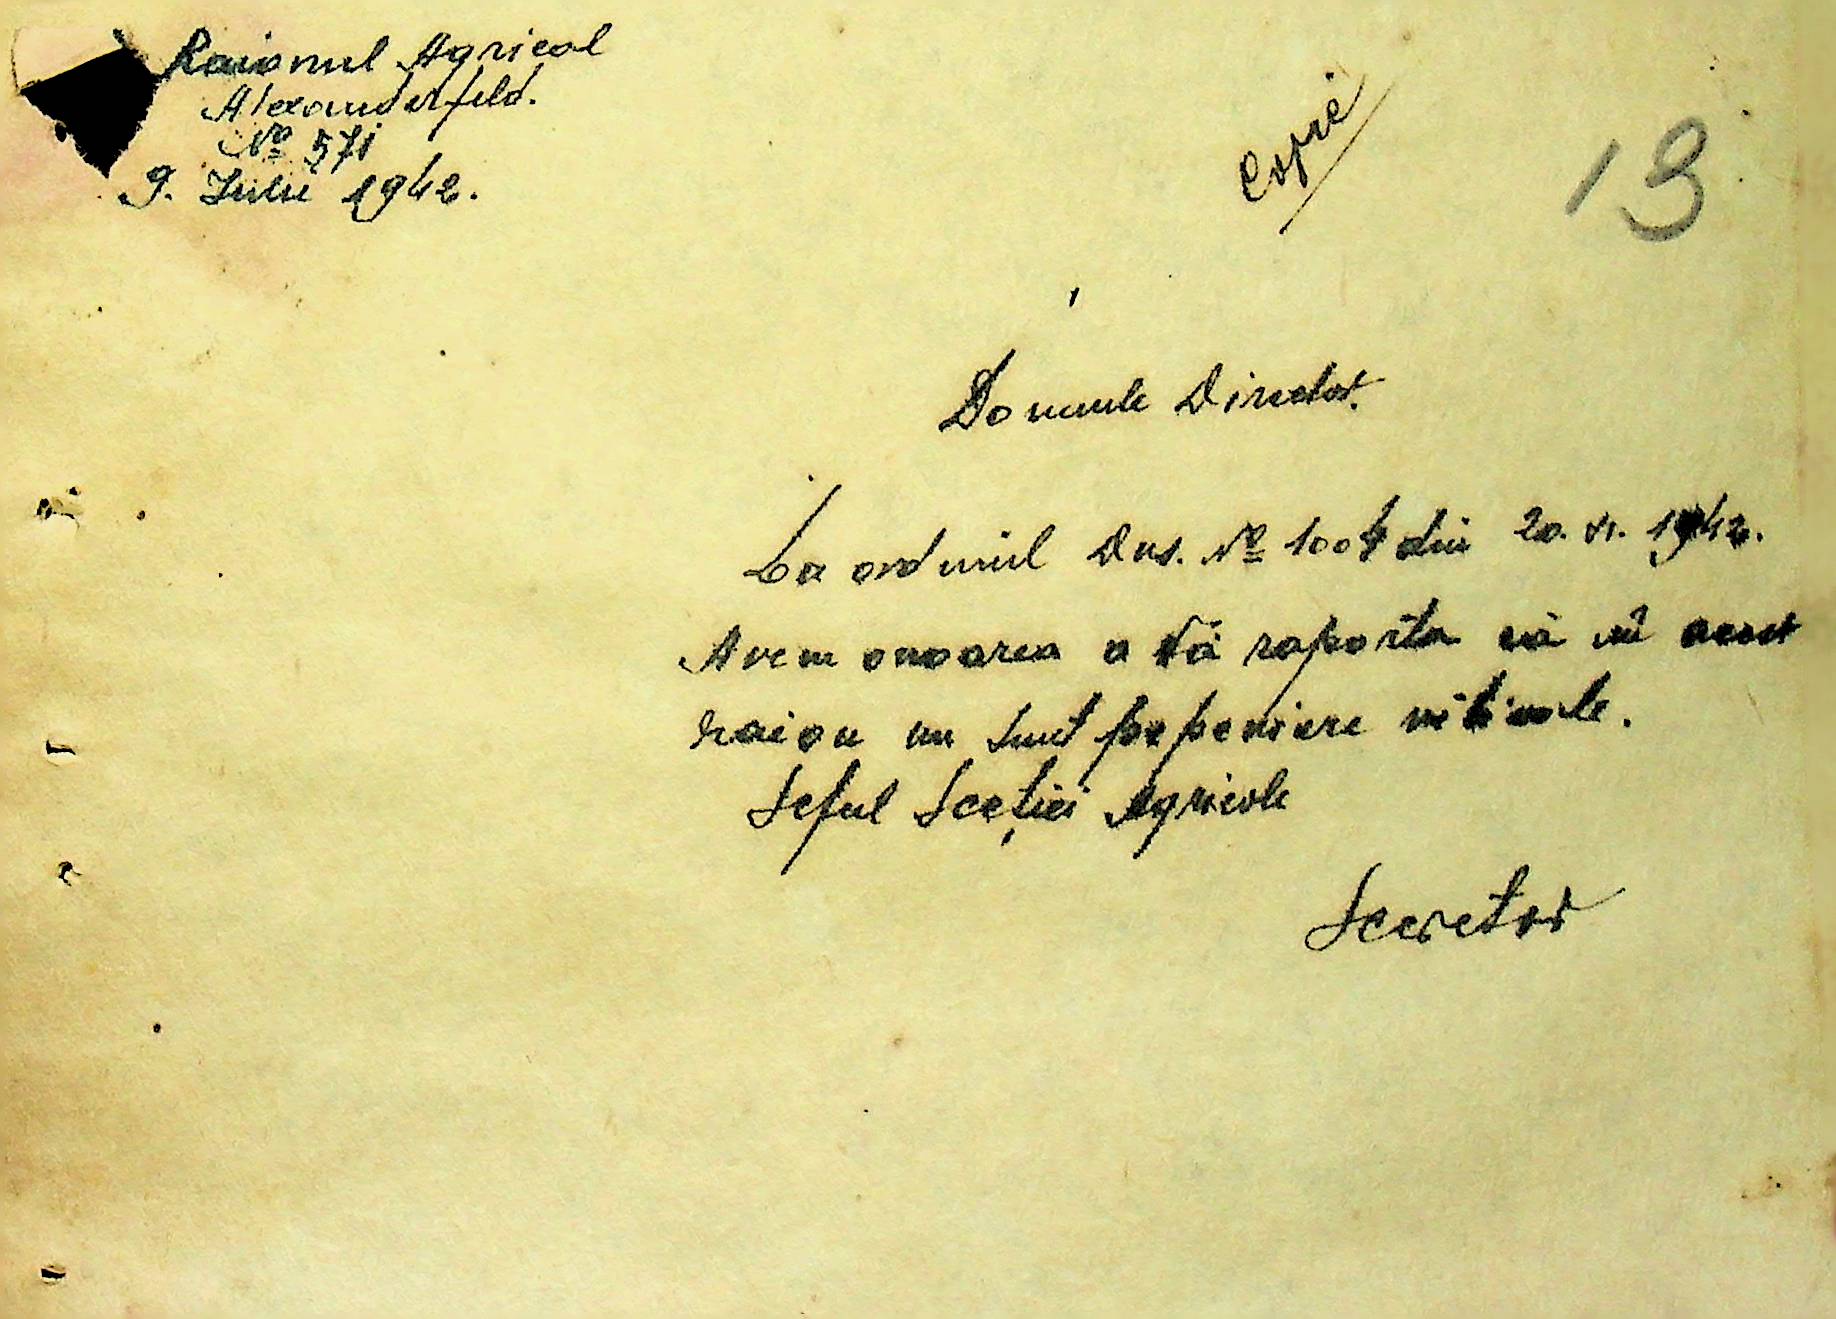 Raionul Agricol
Alexanderfeld.
No 571
9. Iulie 1942.
Copie
13
Domnule Director.
La ordinul Dvs. No 1004 din 20. VI. 1942.
Avem onoarea a Vă raporta că în acest
raion nu sunt pepeniere viticole.
Seful Secţiei Agricole
Secretar